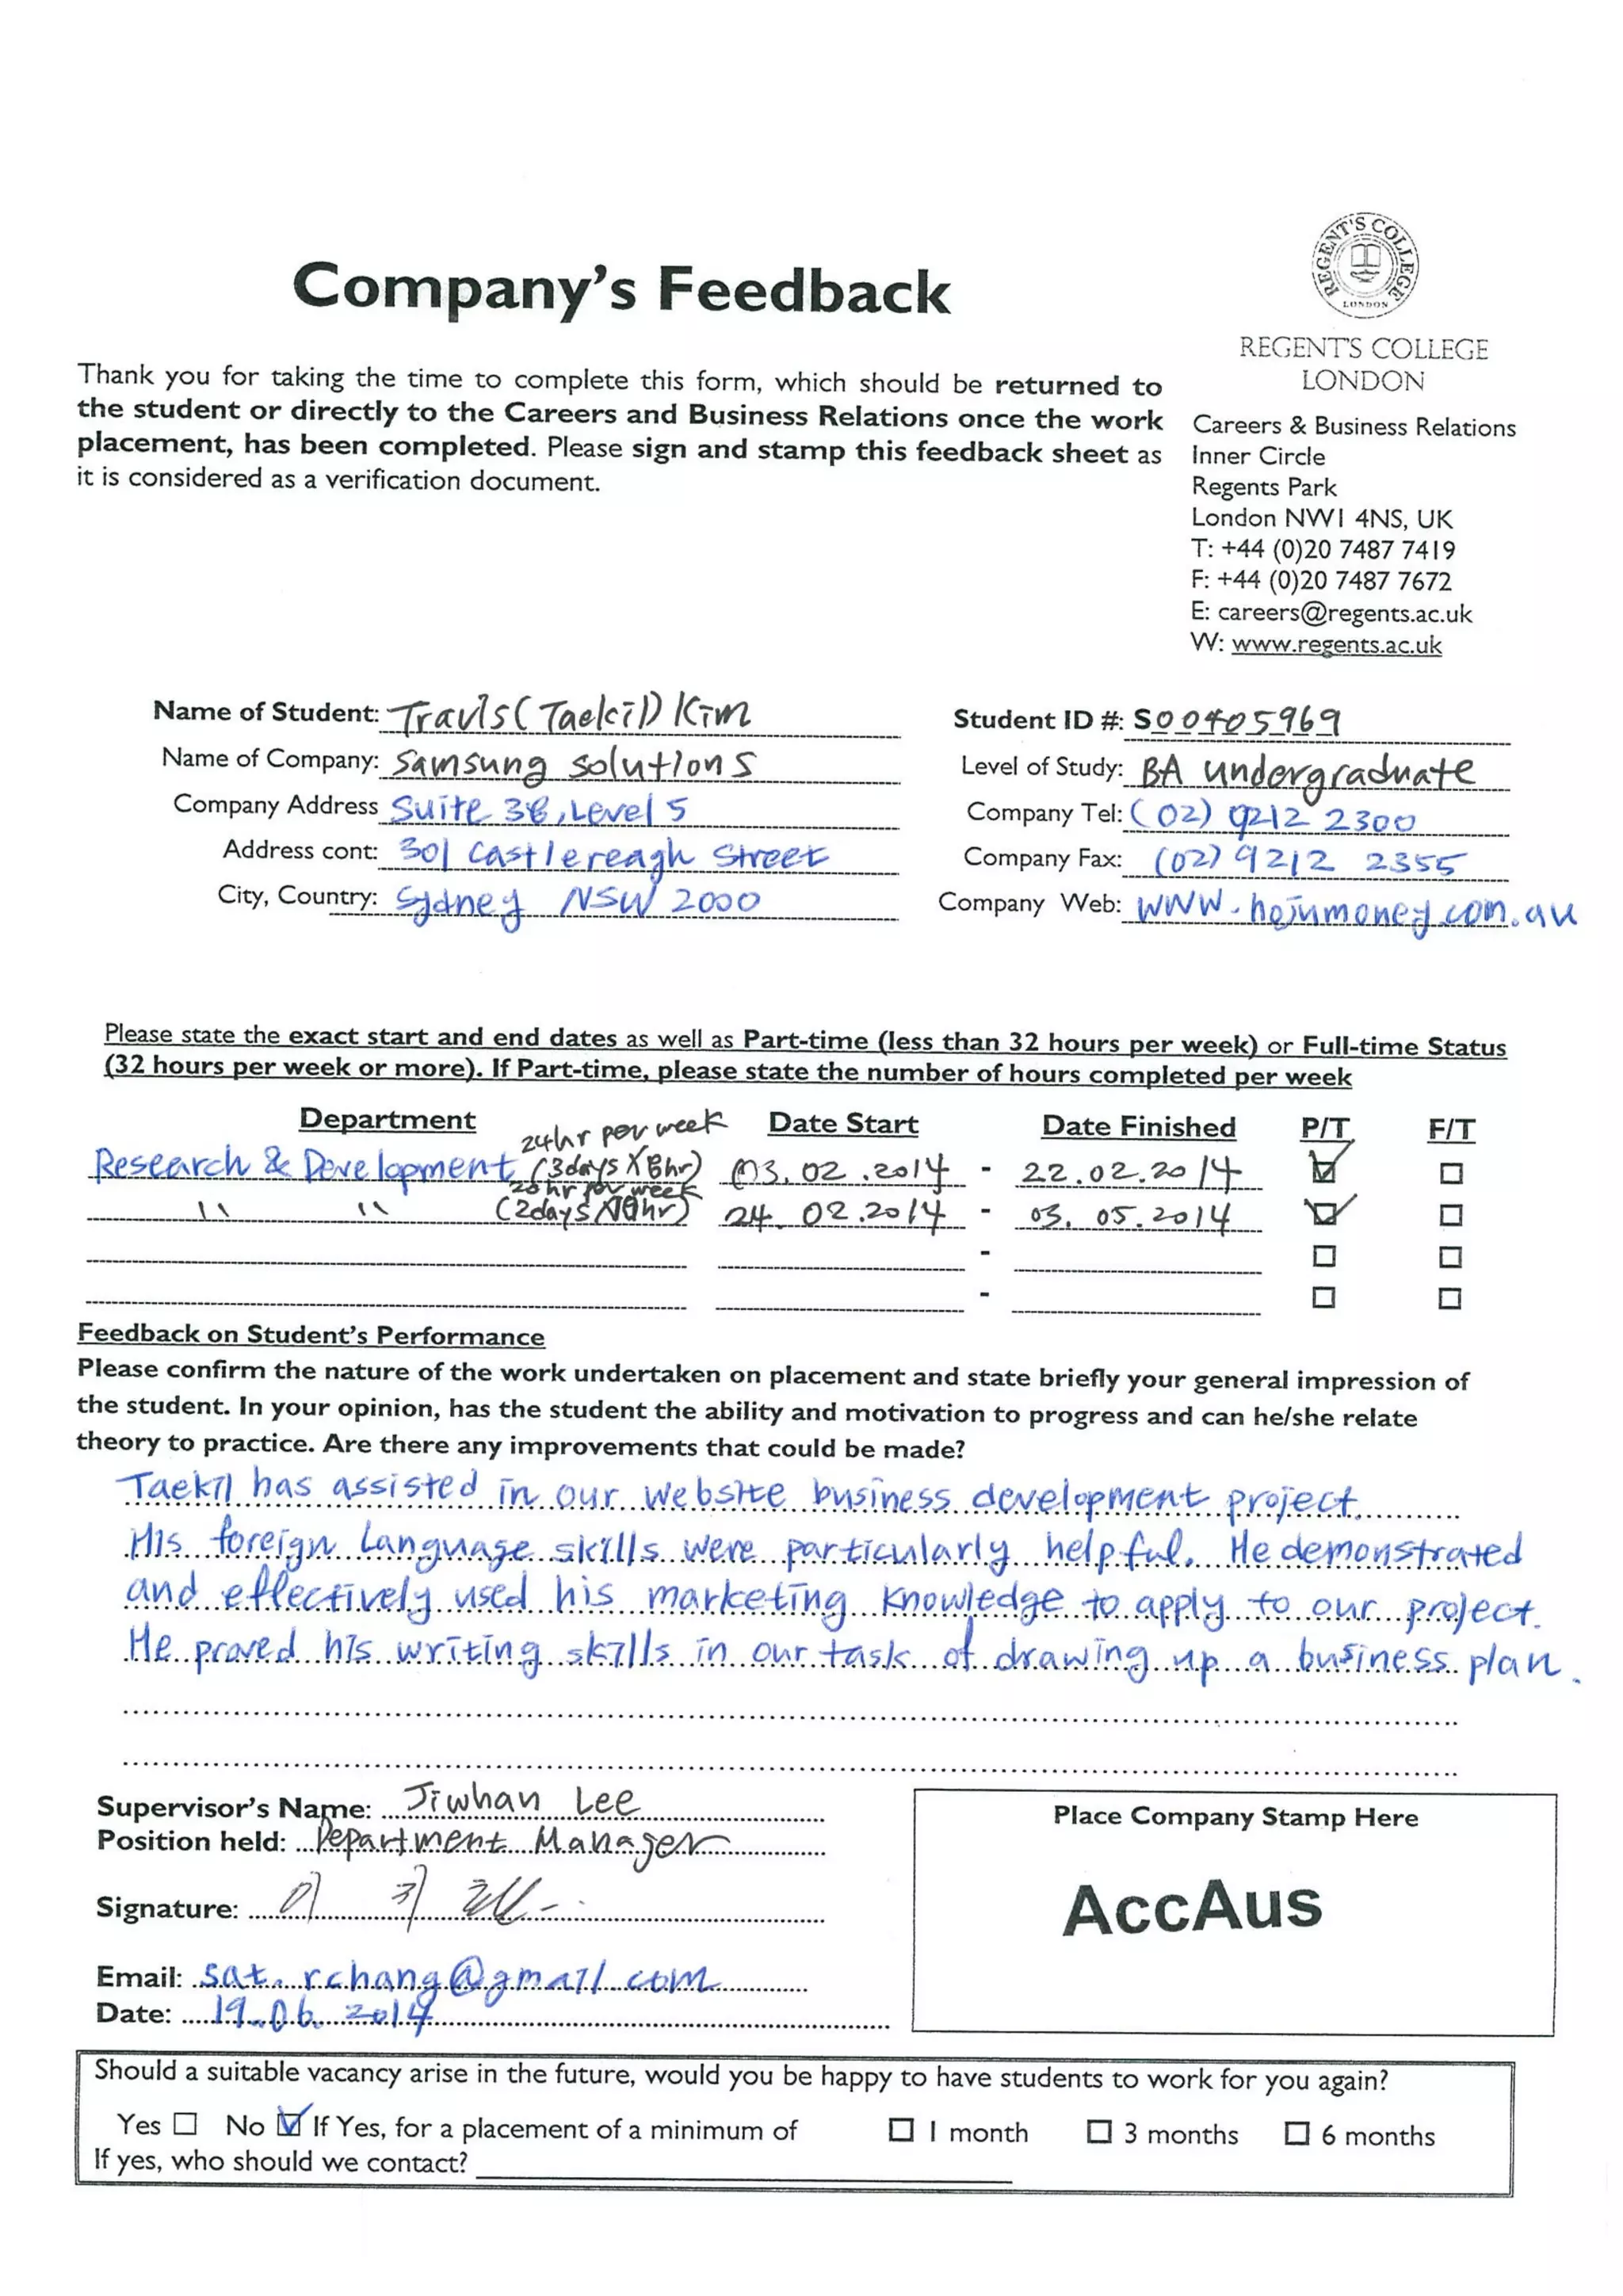 REGENT'S COLLEGE
LONDON
Company's Feedback
REGENT'S COLLEGE
LONDON
Thank you for taking the time to complete this form, which should be returned to
the student or directly to the Careers and Business Relations once the work
placement, has been completed. Please sign and stamp this feedback sheet as
it is considered as a verification document.
Careers & Business Relations
Inner Circle
Regents Park
London NW1 4NS, UK
T: +44 (0)20 7487 7419
F: +44 (0)20 7487 7672
E: careers@regents.ac.uk
W: www.regents.ac.uk
Name of Student: Travis (Taekil) Kim
Name of Company: Samsung solutions
Company Address Suite 38, Level 5
Address cont: 301 Castlereagh Street
City, Country: Sydney NSW 2000
Student ID #: S00405969
Level of Study: BA undergraduate
Company Tel: (02) 9212 2300
Company Fax: (02) 9212 2355
Company Web: www.hojunmoney.com.au
Please state the exact start and end dates as well as Part-time (less than 32 hours per week) or Full-time Status
(32 hours per week or more). If Part-time, please state the number of hours completed per week
Department Date Start Date Finished P/T F/T
24hr per week
Research & Development (3days X 8hr) 03.02.2014 - 22.02.2014
20hr per week
" " (2days 10hr) 24.02.2014 - 03.05.2014
-
-
Feedback on Student's Performance
Please confirm the nature of the work undertaken on placement and state briefly your general impression of
the student. In your opinion, has the student the ability and motivation to progress and can he/she relate
theory to practice. Are there any improvements that could be made?
Taekil has assisted in our website business development project.
His foreign language skills were particularly helpful. He demonstrated
and effectively used his marketing knowledge to apply to our project.
He proved his writing skills in our task of drawing up a business plan.
Supervisor's Name: Jiwhan Lee
Position held: Department Manager
Signature: 이 지
Email: sat.rchang@gmail.com
Date: 19.06.2014
Place Company Stamp Here
AccAus
Should a suitable vacancy arise in the future, would you be happy to have students to work for you again?
Yes No If Yes, for a placement of a minimum of 1 month 3 months 6 months
If yes, who should we contact?